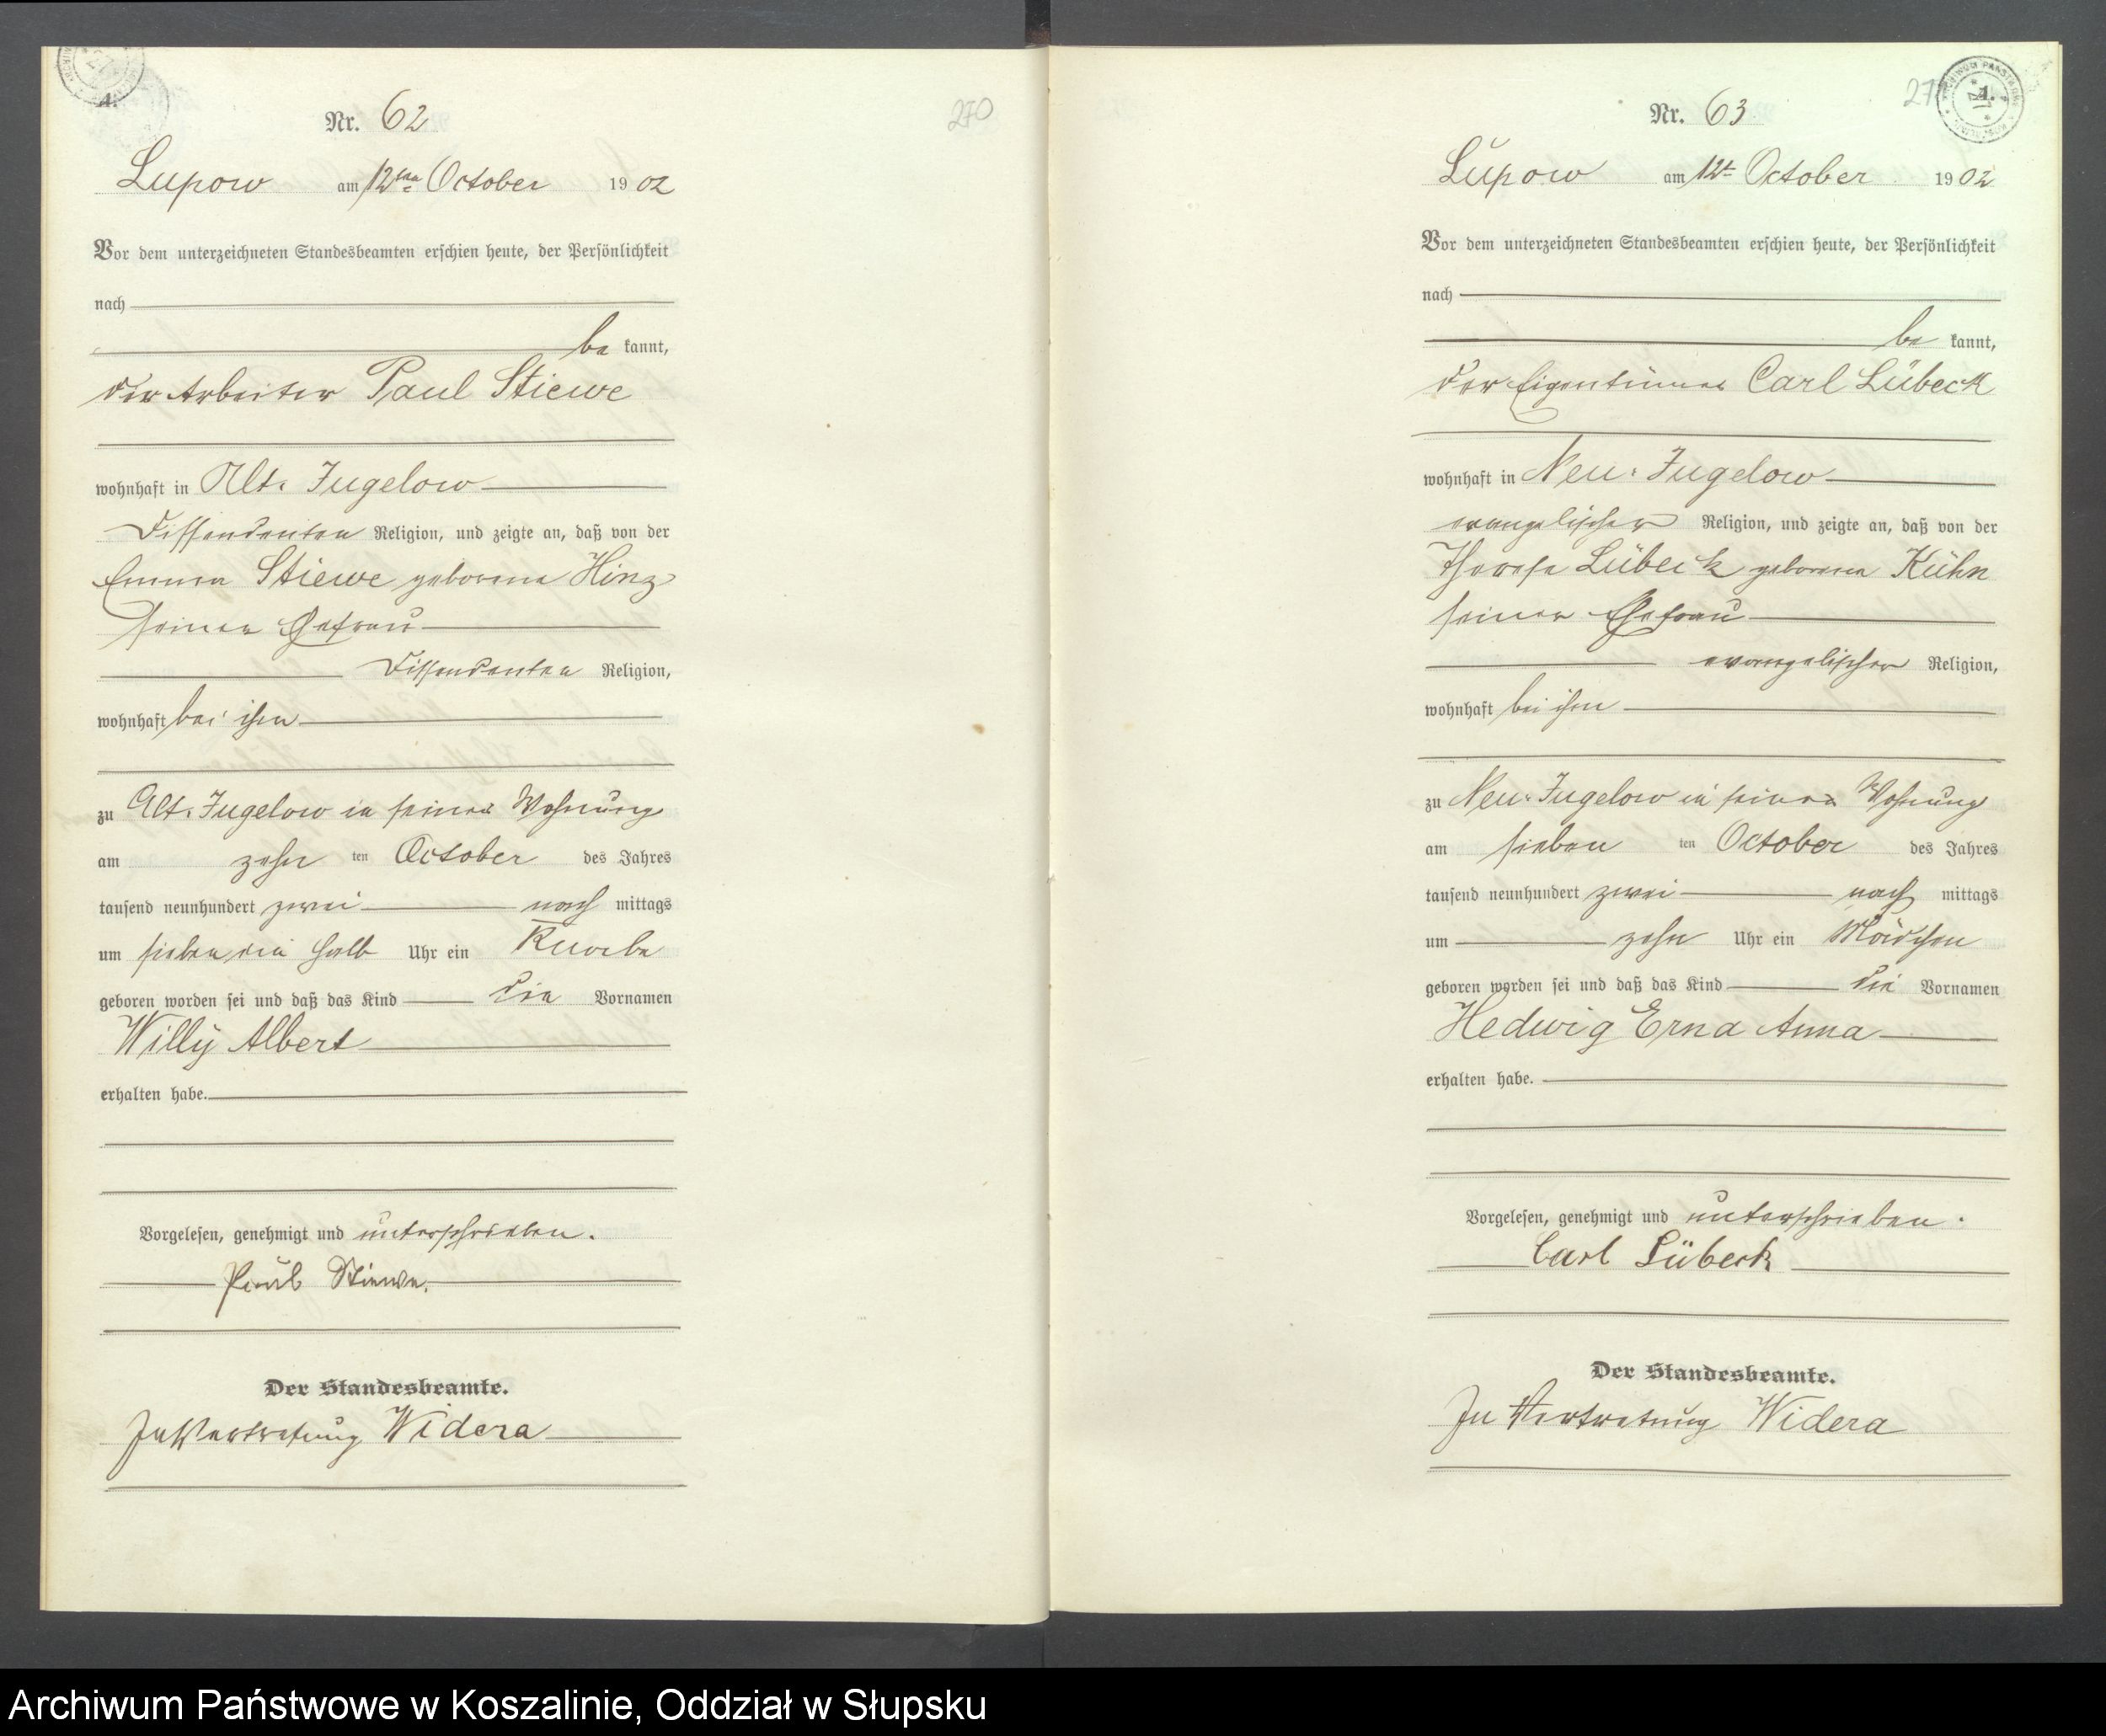 Nr. 62
Lupow am 12ten October 1902
Vor dem unterzeichneten Standesbeamten erschien heute, der Persönlichkeit
nach
be kannt,
der Arbeiter Paul Stiewe
wohnhaft in Alt-Jugelow
Dissendenten Religion, und zeigte an, daß von der
Emma Stiewe geborene Hinz
seiner Ehefrau
Dissendenten Religion,
wohnhaft bei ihm
zu Alt-Jugelow in seiner Wohnung
am zehn ten October des Jahres
tausend neunhundert zwei nach mittags
um sieben ein halb Uhr ein Knabe
geboren worden sei und daß das Kind die Vornamen
Willy Albert
erhalten habe.
Vorgelesen, genehmigt und unterschrieben.
Paul Stiewe.
Der Standesbeamte.
In Vertretung Widera
270
Nr. 63
Lupow am 12t October 1902
Vor dem unterzeichneten Standesbeamten erschien heute, der Persönlichkeit
nach
be kannt,
der Eigentümer Carl Lübeck
wohnhaft in Neu-Jugelow
evangelischer Religion, und zeigte an, daß von der
Therese Lübeck geborene Kühn
seiner Ehefrau
evangelischer Religion,
wohnhaft bei ihm
zu Neu-Jugelow in seiner Wohnung
am sieben ten October des Jahres
tausend neunhundert zwei nach mittags
um zehn Uhr ein Mädchen
geboren worden sei und daß das Kind die Vornamen
Hedwig Erna Anna
erhalten habe.
Vorgelesen, genehmigt und unterschrieben.
Carl Lübeck
Der Standesbeamte.
In Vertretung Widera
Archiwum Państwowe w Koszalinie, Oddział w Słupsku